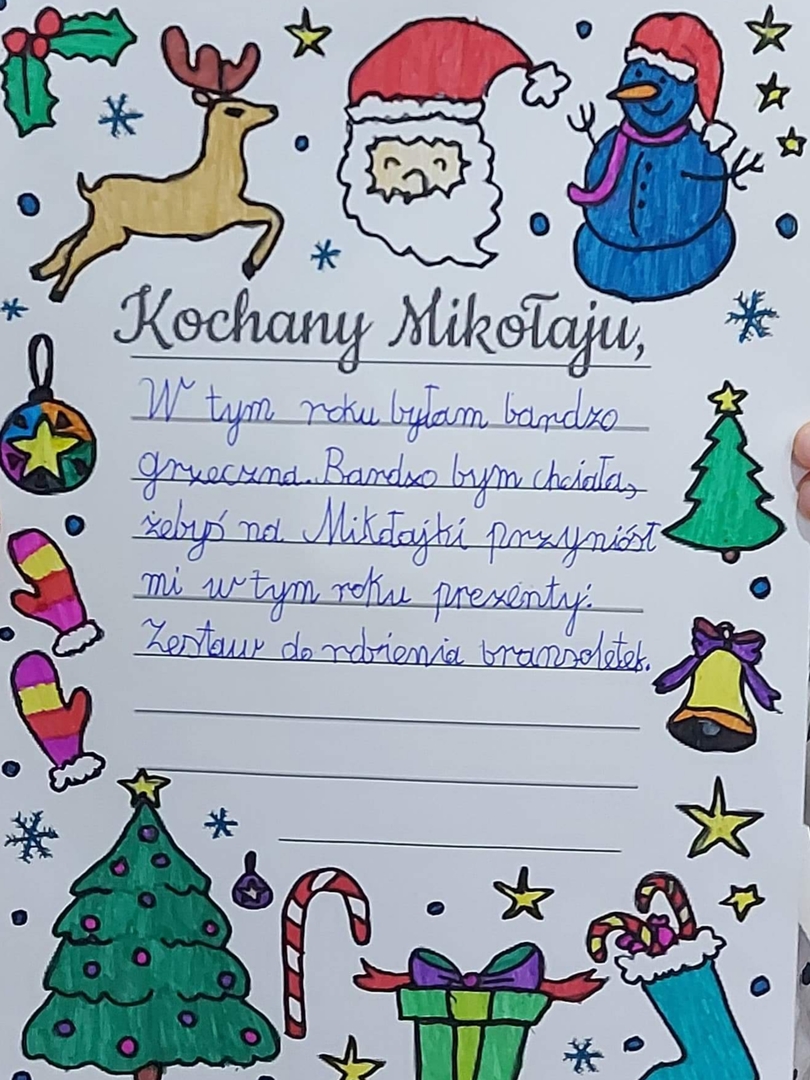 Kochany Mikołaju,
W tym roku byłam bardzo
grzeczna. Bardzo bym chciała,
żebyś na Mikołajki przyniósł
mi w tym roku prezenty:
Zestaw do robienia branzoletek.